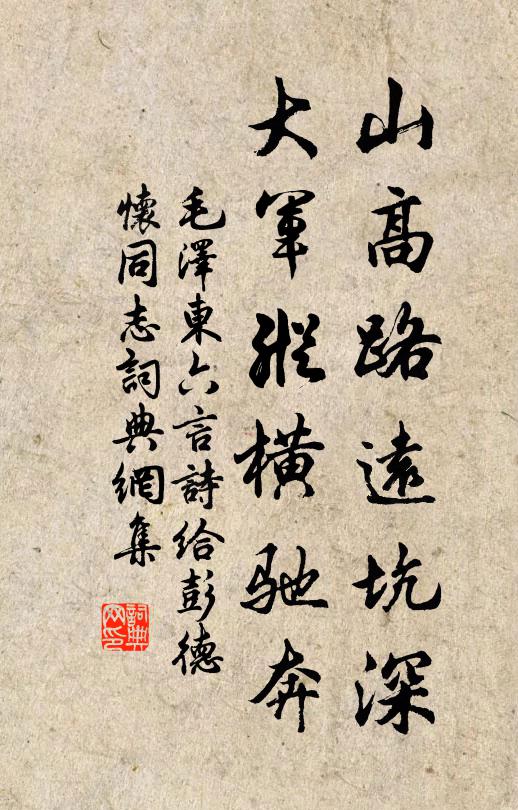 山高路遠坑深
大軍縱橫馳奔
毛澤東六言詩給彭德
懷同志詞典網集
詞典
网印